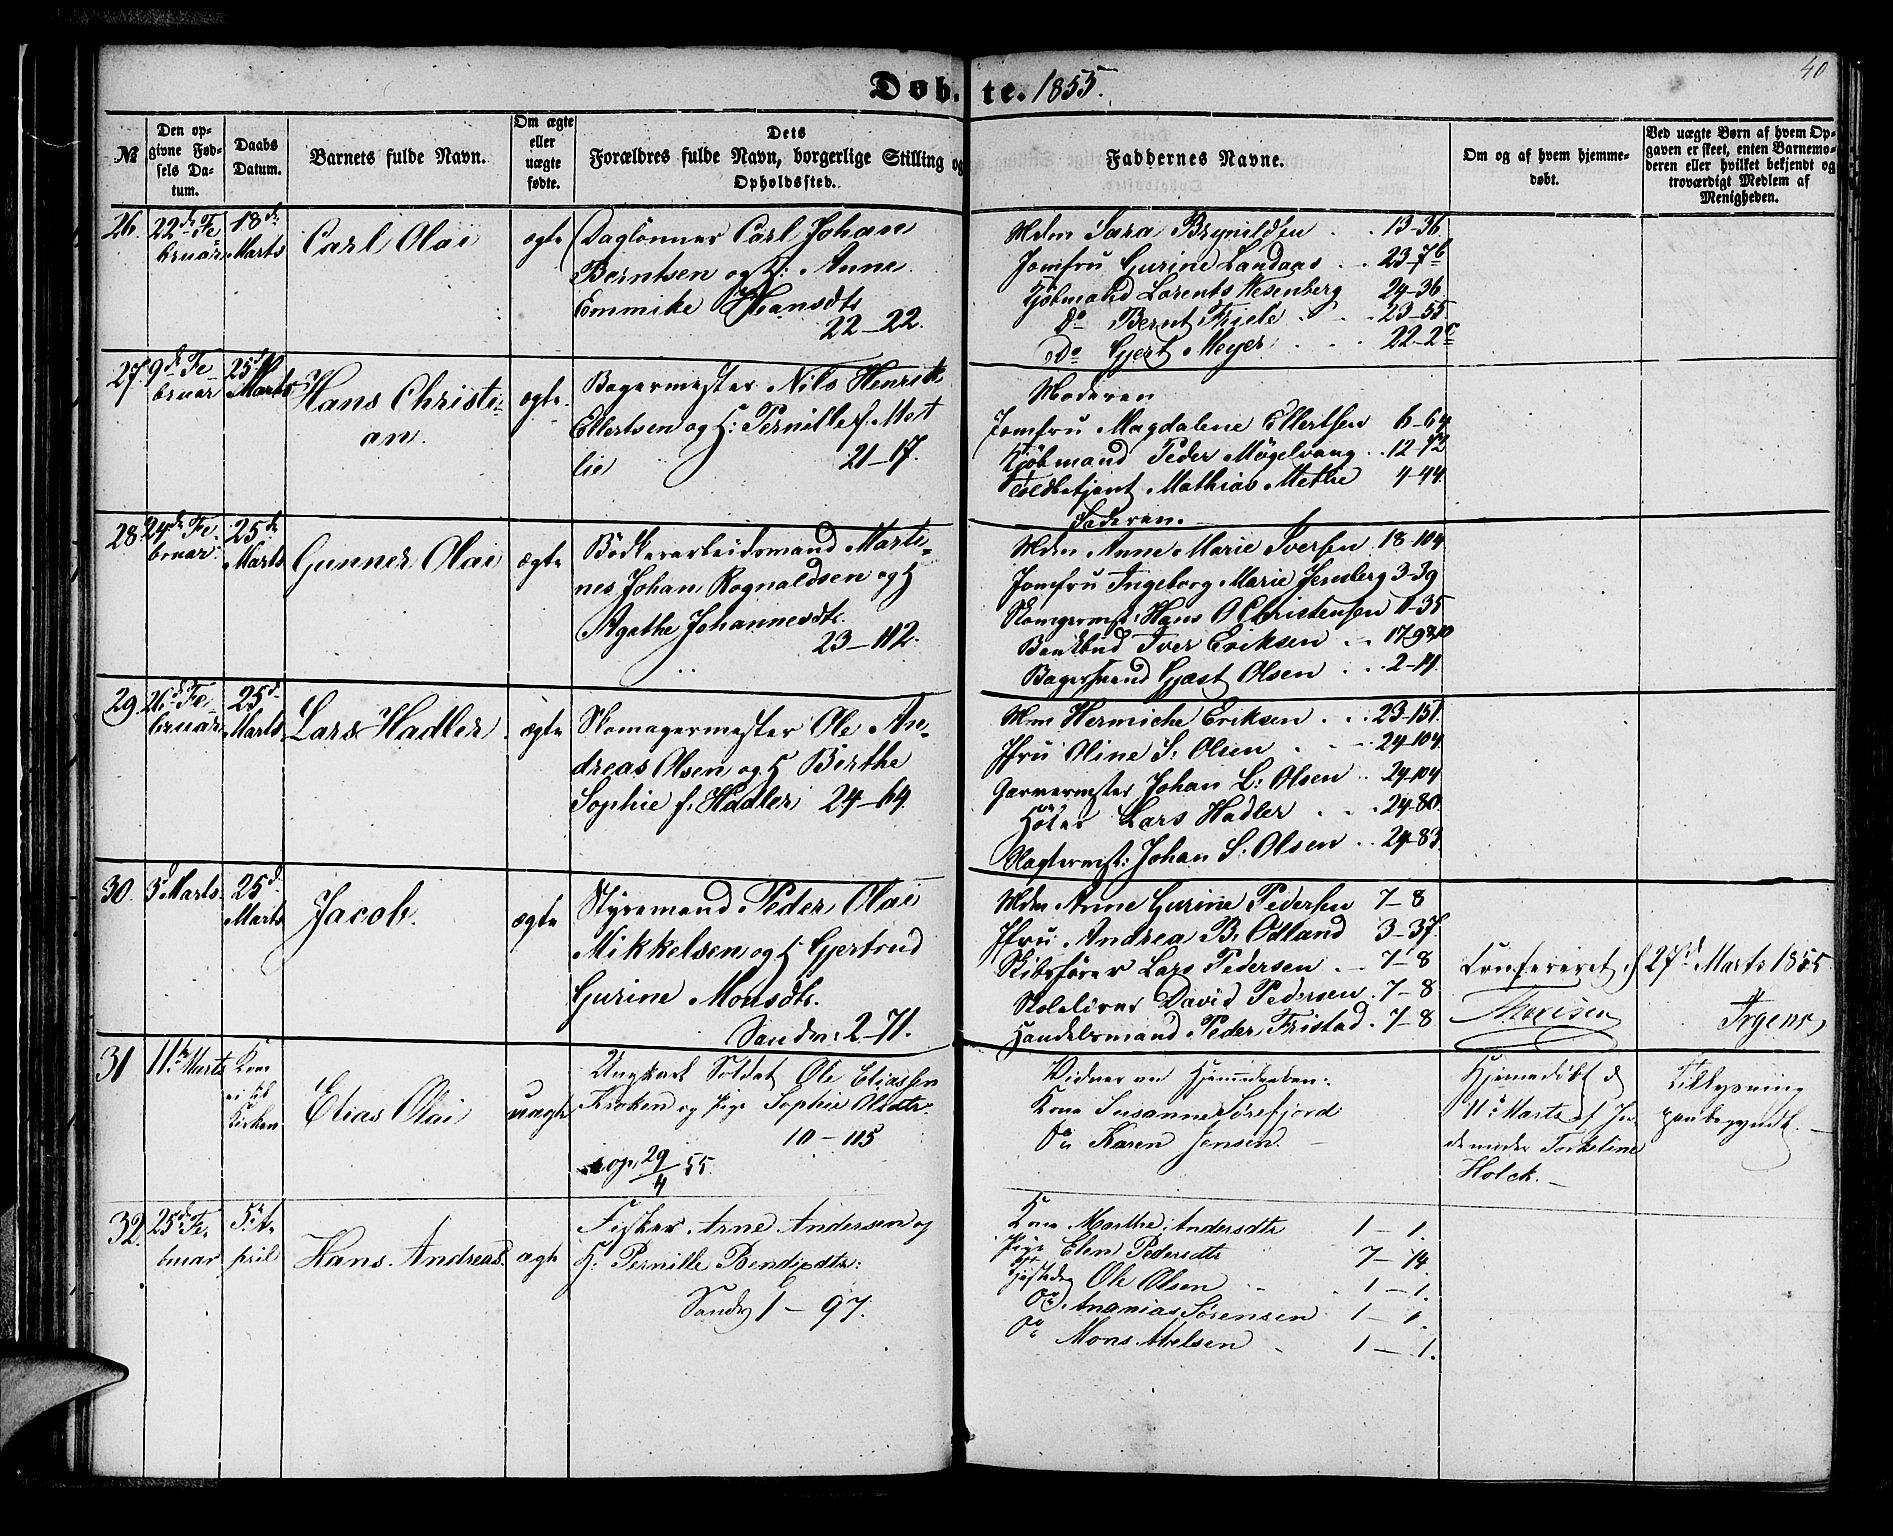 40
Døbte. 1855.
№
Den opgivne Fødsels Datum.
Daabs Datum.
Barnets fulde Navn.
Om ægte eller uægte fødte.
Dets Forældres fulde Navn, borgerlige Stilling og Opholdssted.
Faddernes Navne.
Om og af hvem hjemmedøbt.
Ved uægte Børn af hvem Opgaven er skeet, enten Barnemoderen eller hvilket bekjendt og troværdigt Medlem af Menigheden.
26. 22de Februar 18de Marts Carl Olai ægte
Daglønner Carl Johan
Berntsen og H: Anne
Emmike Hansdtr
22-22.
Mdm Sara Brynildsen 13-36.
Jomfru Gurine Landaas 23-7b
Kjøbmand Lorents Wesenberg 24-36
Do Bernt Friele 23-55
Do Gjert Meyer 22-2c
27. 9de Februar 25de Marts Hans Christian. ægte
Bagermester Nils Henrik
Ellertsen og H: Pernille f. Met
lie 21-17.
Moderen
Jomfru Magdalene Ellertsen 6-64
Kjøbmand Peder Møgelvang 12-72
Toldbetjent Mathias Methe 4-44.
Faderen.
28. 24de Februar 25de Marts Gunner Olai ægte
Bødkerarbeidsmand Marti-
nes Johan Rognaldsen og H
Agathe Johannesdtr.
23-112.
Mdm Anne Marie Iversen 18-104
Jomfru Ingeborg Marie Jernberg 3-39
Skomagermest: Hans O Christensen 11-35
Bankbud Iver Eriksen
Bagersvend Gjest Olsen
29. 26de Februar 25de Marts Lars Hadler ægte
Skomagermester Ole An-
dreas Olsen og H Birthe
Sophie f. Hadler 24-64.
Mm Hermiche Eriksen 23-151.
Jfru Oline S: Olsen 24-104
Garvermester Johan L: Olsen 24-104
Høker Lars Hadler 24-80.
Slagtermst: Johan S: Olsen 24-83
30. 5d Marts 25d. Marts Jacob. ægte
Styrmand Peder Olai
Mikkelsen og H Gjertrud
Gurine Monsdtr.
Sandv: 2-71.
Mdm Anne Gurine Pedersen 7-8
Jfru: Andrea B. Odland 3-37.
Skibsfører Lars Pedersen 7-8
Skolelærer David Pedersen 7-8
Handelsmand Peder Fristad 7-8
Confereret d 27d Marts 1855
Irgens
31 11te Marts Kom ei til Kirken Elias Olai uægte
Ungkarl Soldat Ole Eliassen
Kroken og Pige Sophie Olsdtr.
10-115
cop. 29/4 55.
Vidner ved Hjemmedaaben:
Kone Susanne Sørefjord
Do Karen Jensen.
Hjemmedøbt d
11te Marts af Jor-
demoder Torkeline
Holck.
32. 25de Februar 5te April Hans Andreas. ægte
Fisker Arne Andersen og
H: Pernille Bendixdtr:
Sandv 1-97.
Kone Marthe Andersdtr 1-1.
Pige Elen Pedersdtr 7-14
Ole Olsen 1-1.
Do Ananias Sørensen 1-1.
Do Mons Mielsen 1-1.